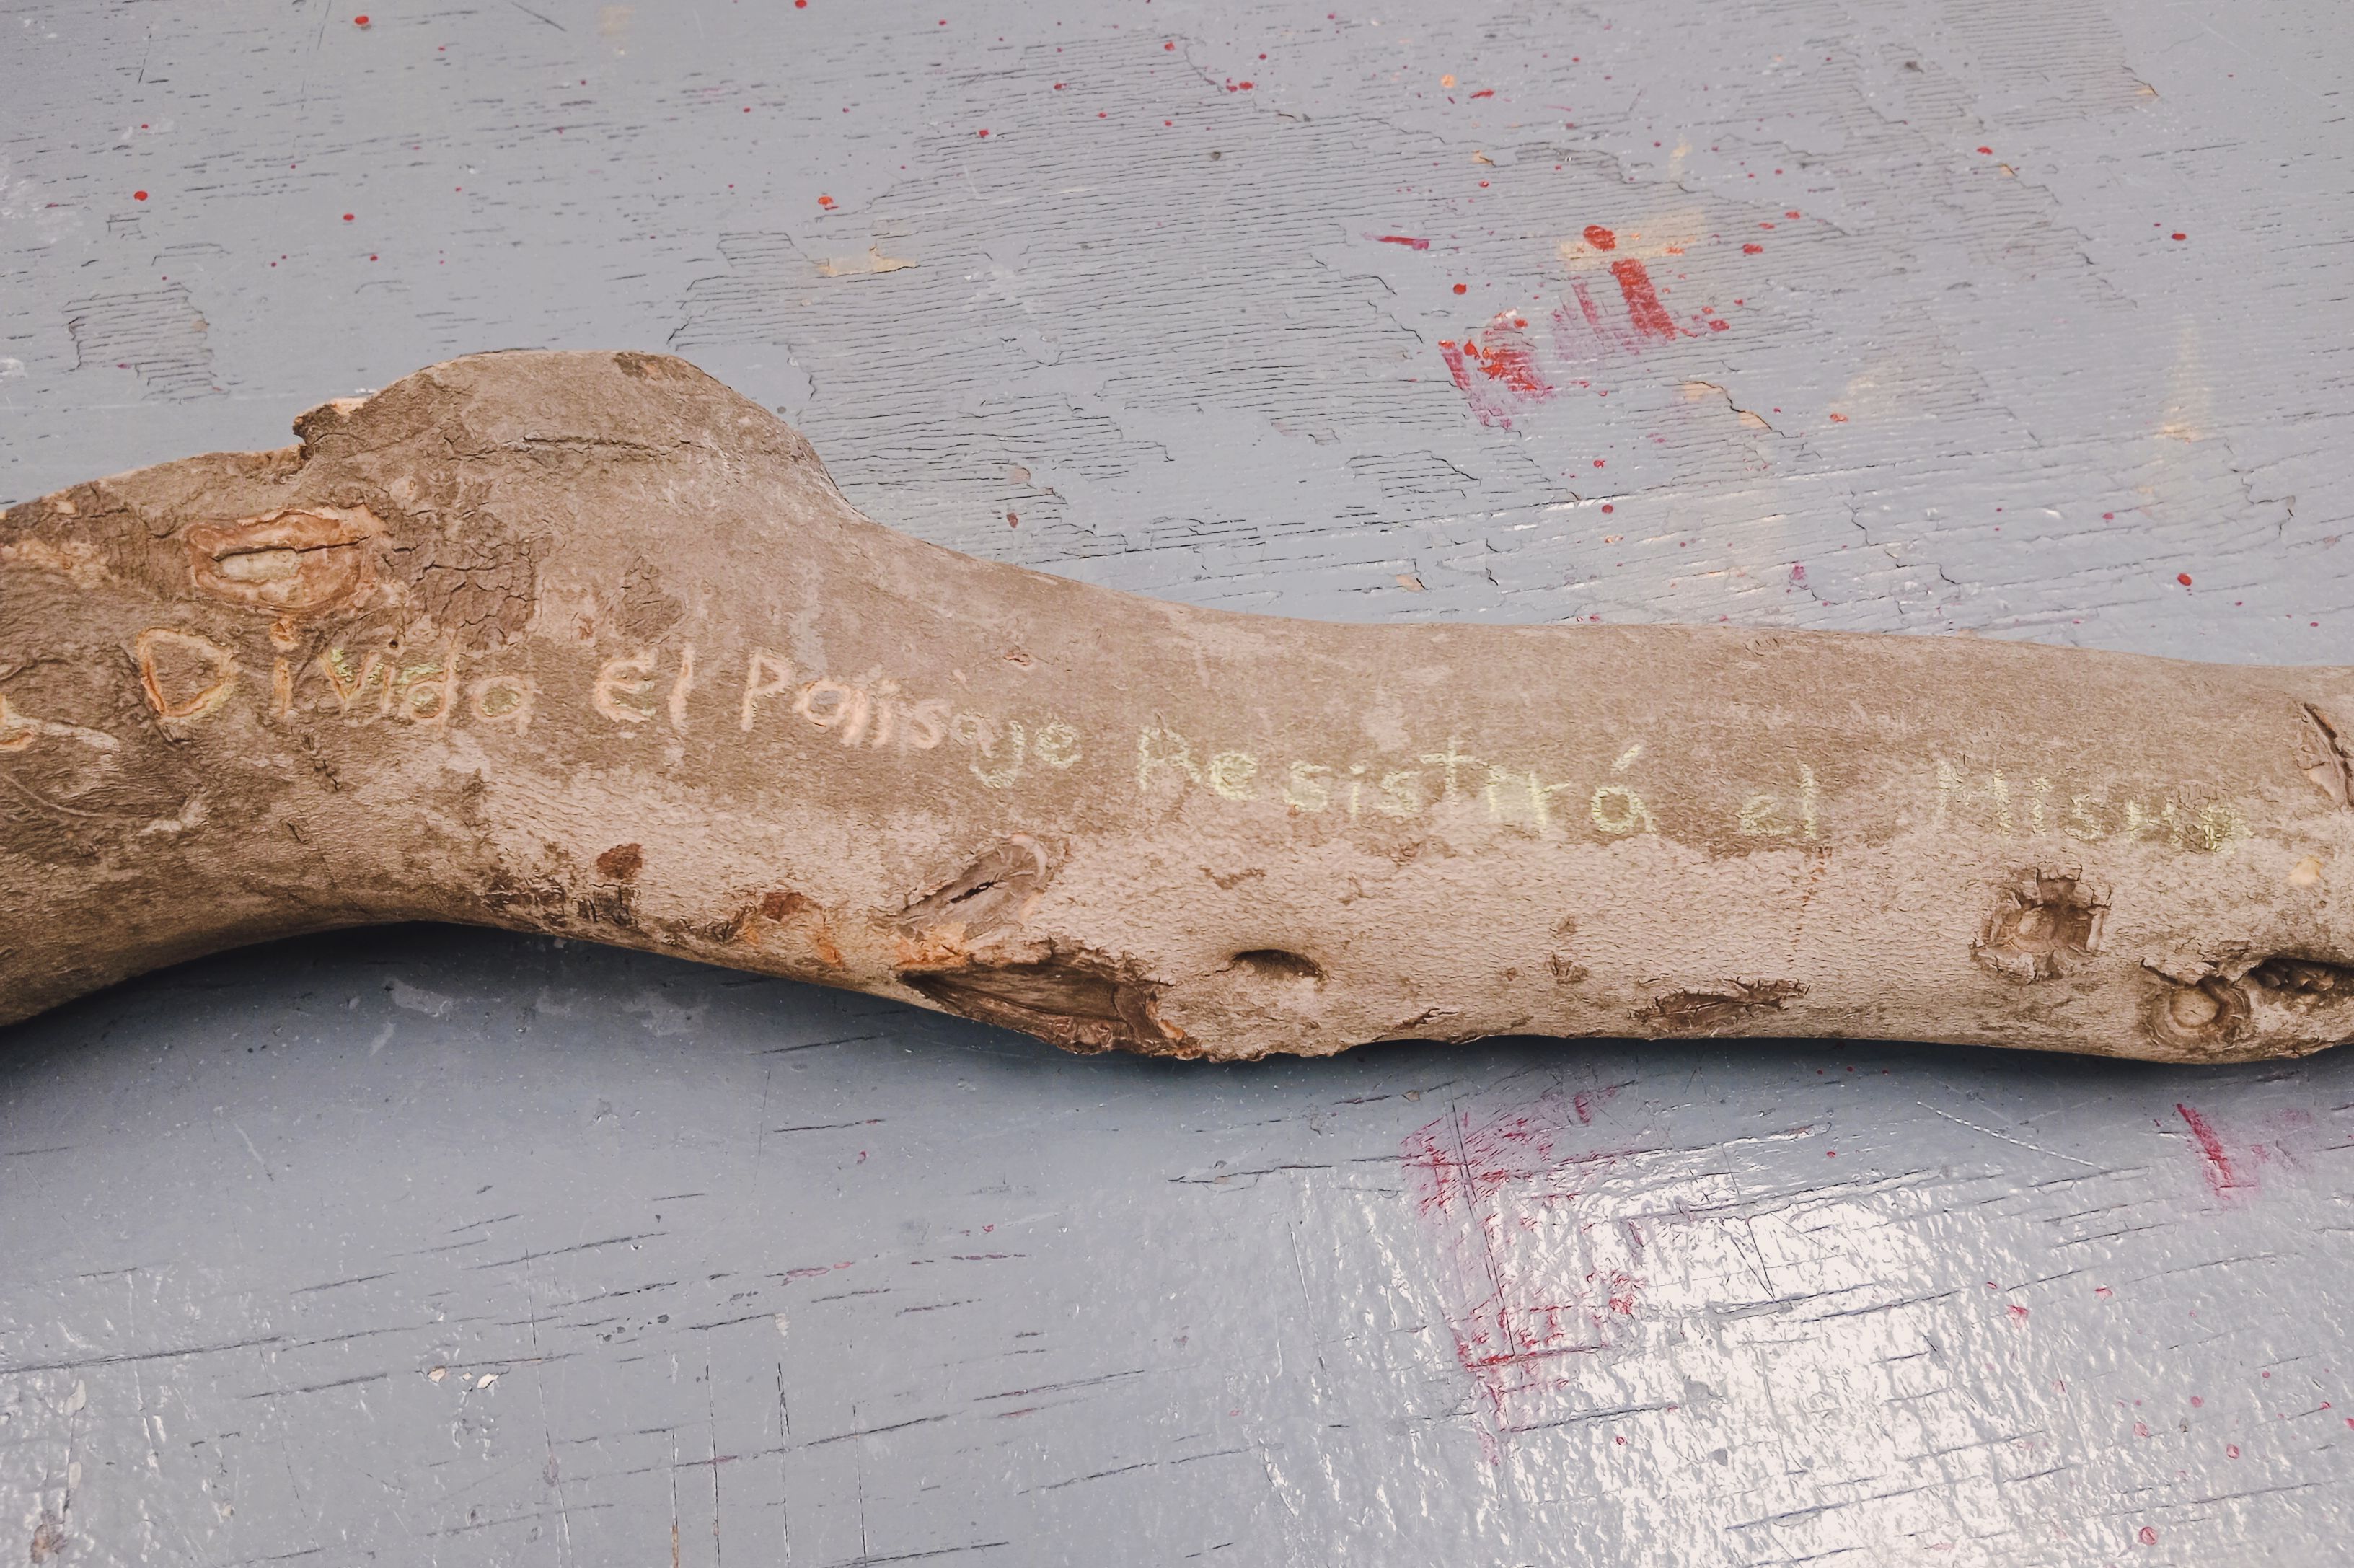 Divida el Paisaje Resistirá el Mismo